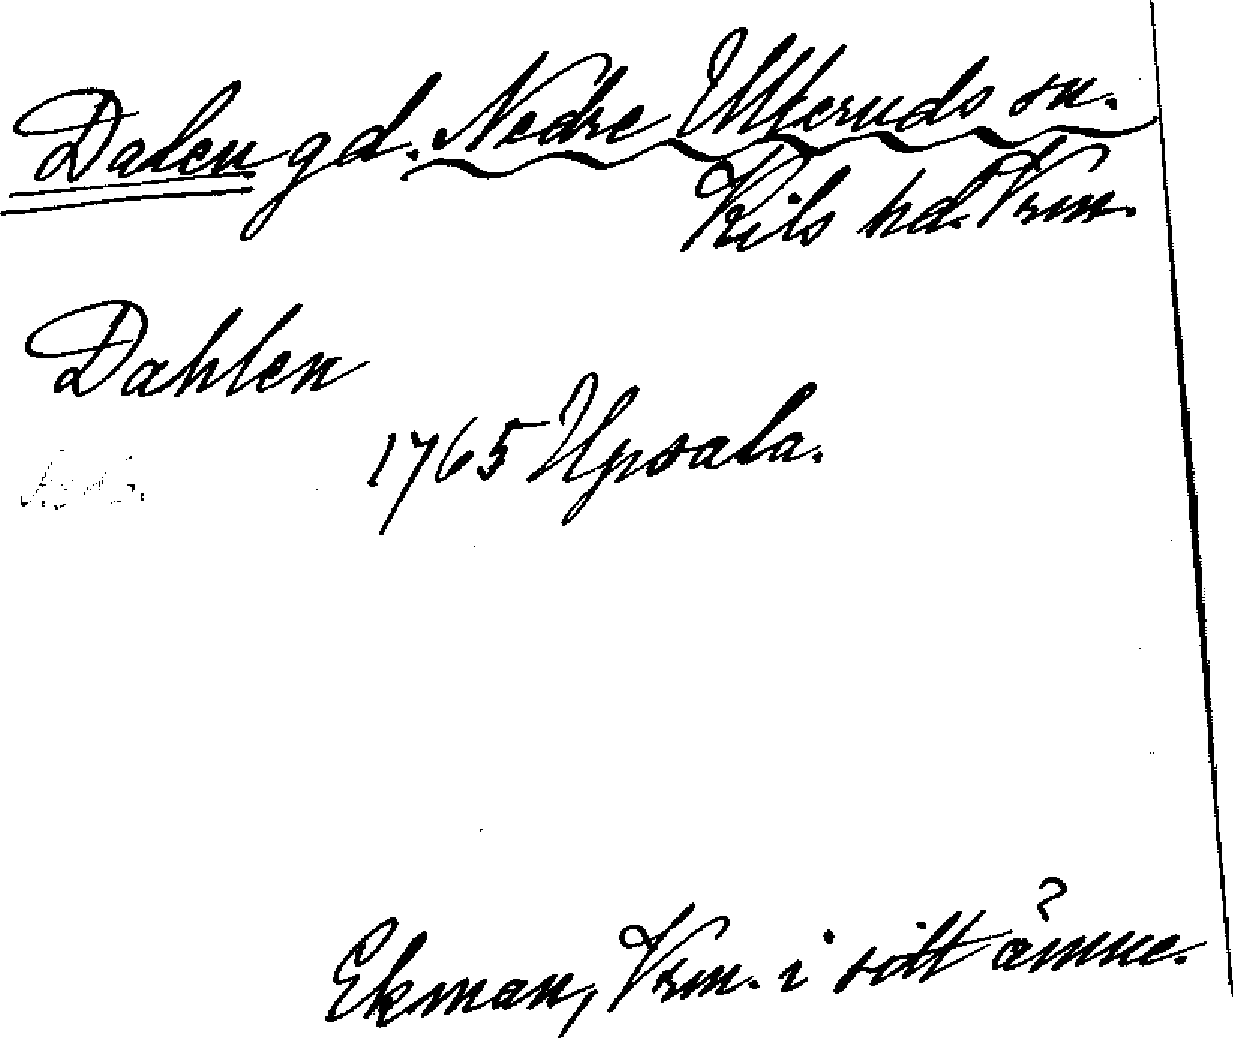 Dalen gd. Nedre Ulleruds sn.
Kils hd. Vrm.
Dahlen
1765 Upsala.
Ekman, Vrm. i sitt ämne.